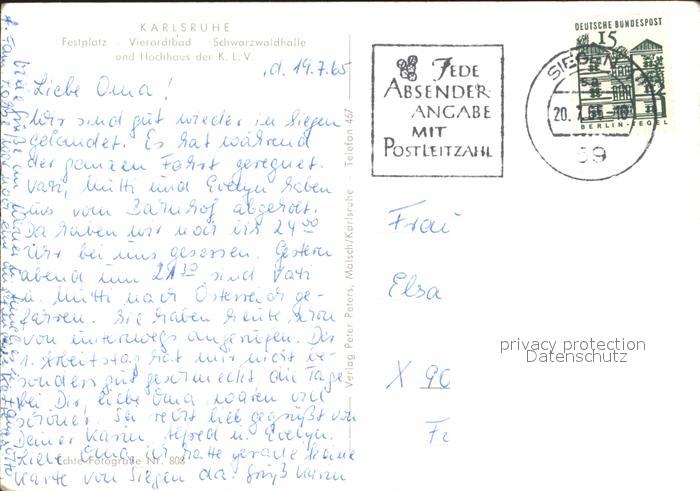 KARLSRUHE
Festplatz · Vierordtbad · Schwarzwaldhalle
und Hochhaus der K. L. V.
, d. 19.7.65
Liebe Oma!
Wir sind gut wieder in Siegen
gelandet. Es hat während
der ganzen Fahrt geregnet.
Vati, Mutti und Evelyn haben
uns vom Bahnhof abgeholt.
Da haben wir noch bis 24 00
Uhr bei uns gesessen. Gestern
abend um 21 30 sind Vati
u. Mutti nach Österreich ge-
fahren. Sie haben heute schon
von unterwegs angerufen. Der
1. Arbeitstag hat mir nicht be-
sonders gut geschmeckt die Tage
bei Dir, liebe Oma, waren viel
schöner. Sei recht lieb gegrüßt von
Deiner Karin, Alfred u. Evelyn.
Liebe Oma ich hatte gerade keine
Karte von Siegen da. Gruß Karin
Echte Fotografie Nr. 808
Verlag Peter Peters, Malsch/Karlsruhe - Telefon 467
JEDE
ABSENDER-
ANGABE
MIT
POSTLEITZAHL
SIEGEN
20.7.65-18
59
DEUTSCHE BUNDESPOST
15
BERLIN-TEGEL
Frau
Elsa
X 90
privacy protection
Datenschutz